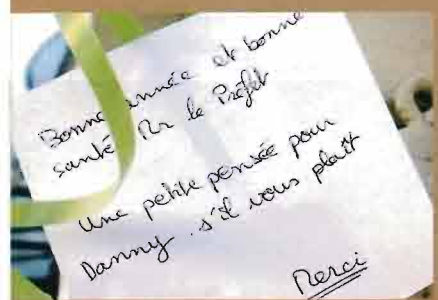 Bonne année et bonne
santé Mr le Préfet
Une petite pensée pour
Danny s'il vous plaît
Merci